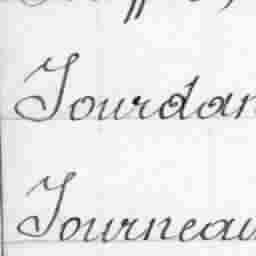 Jourdan
Journeau